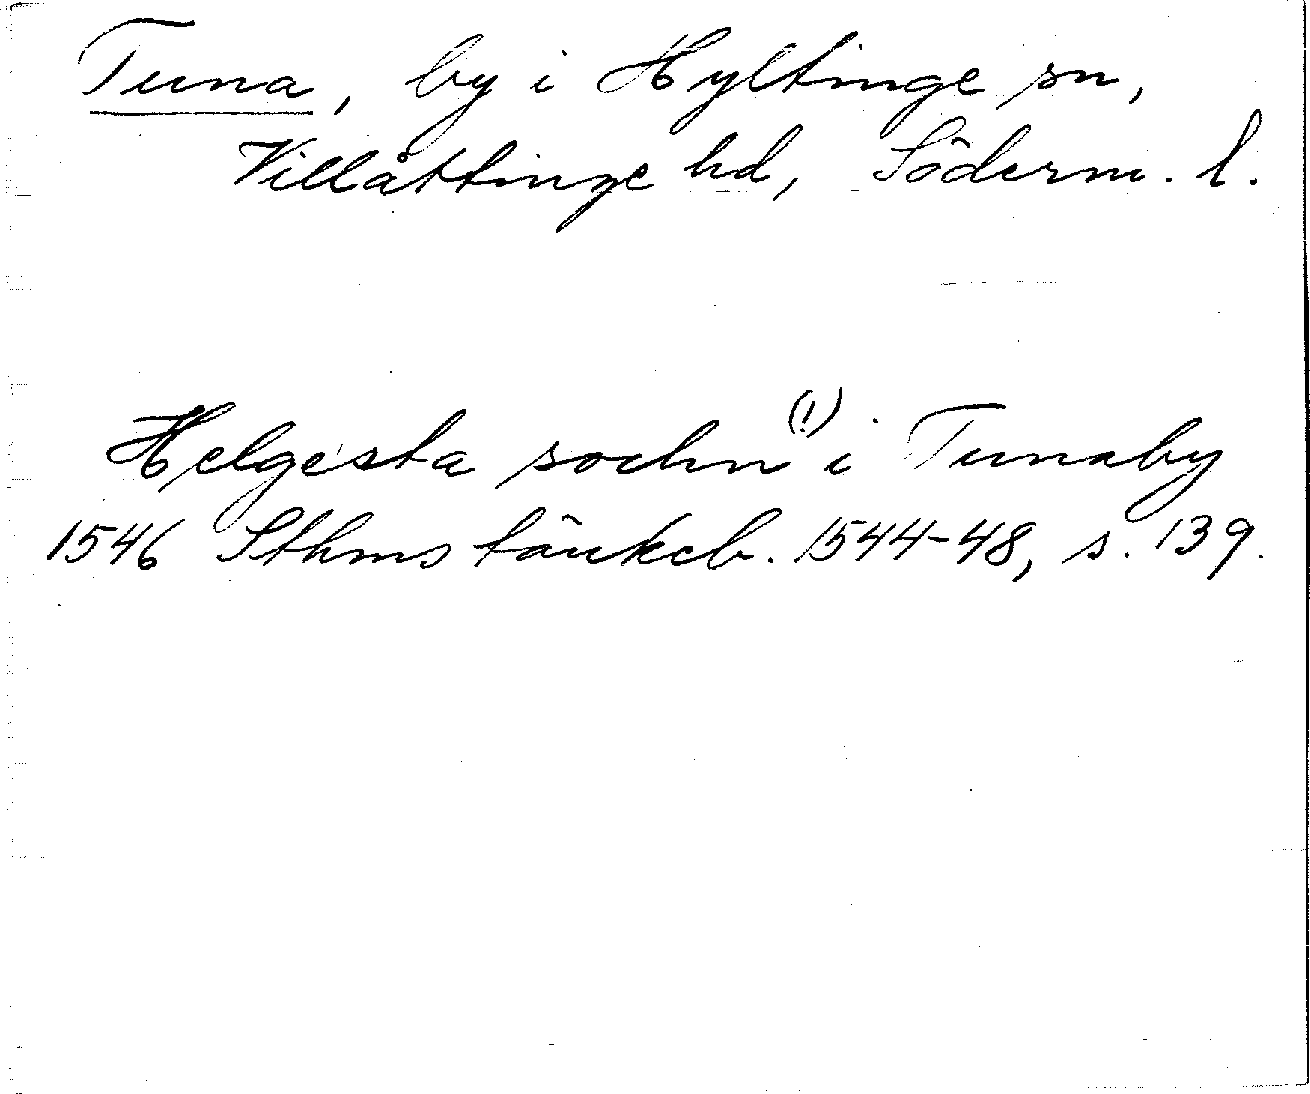 Tuna, by i Hyltinge sn,
Villåttinge hd, Söderm. l.
Helgesta sochn (!) i Tunaby
1546 Sthms tänkeb. 1544-48, s. 139.